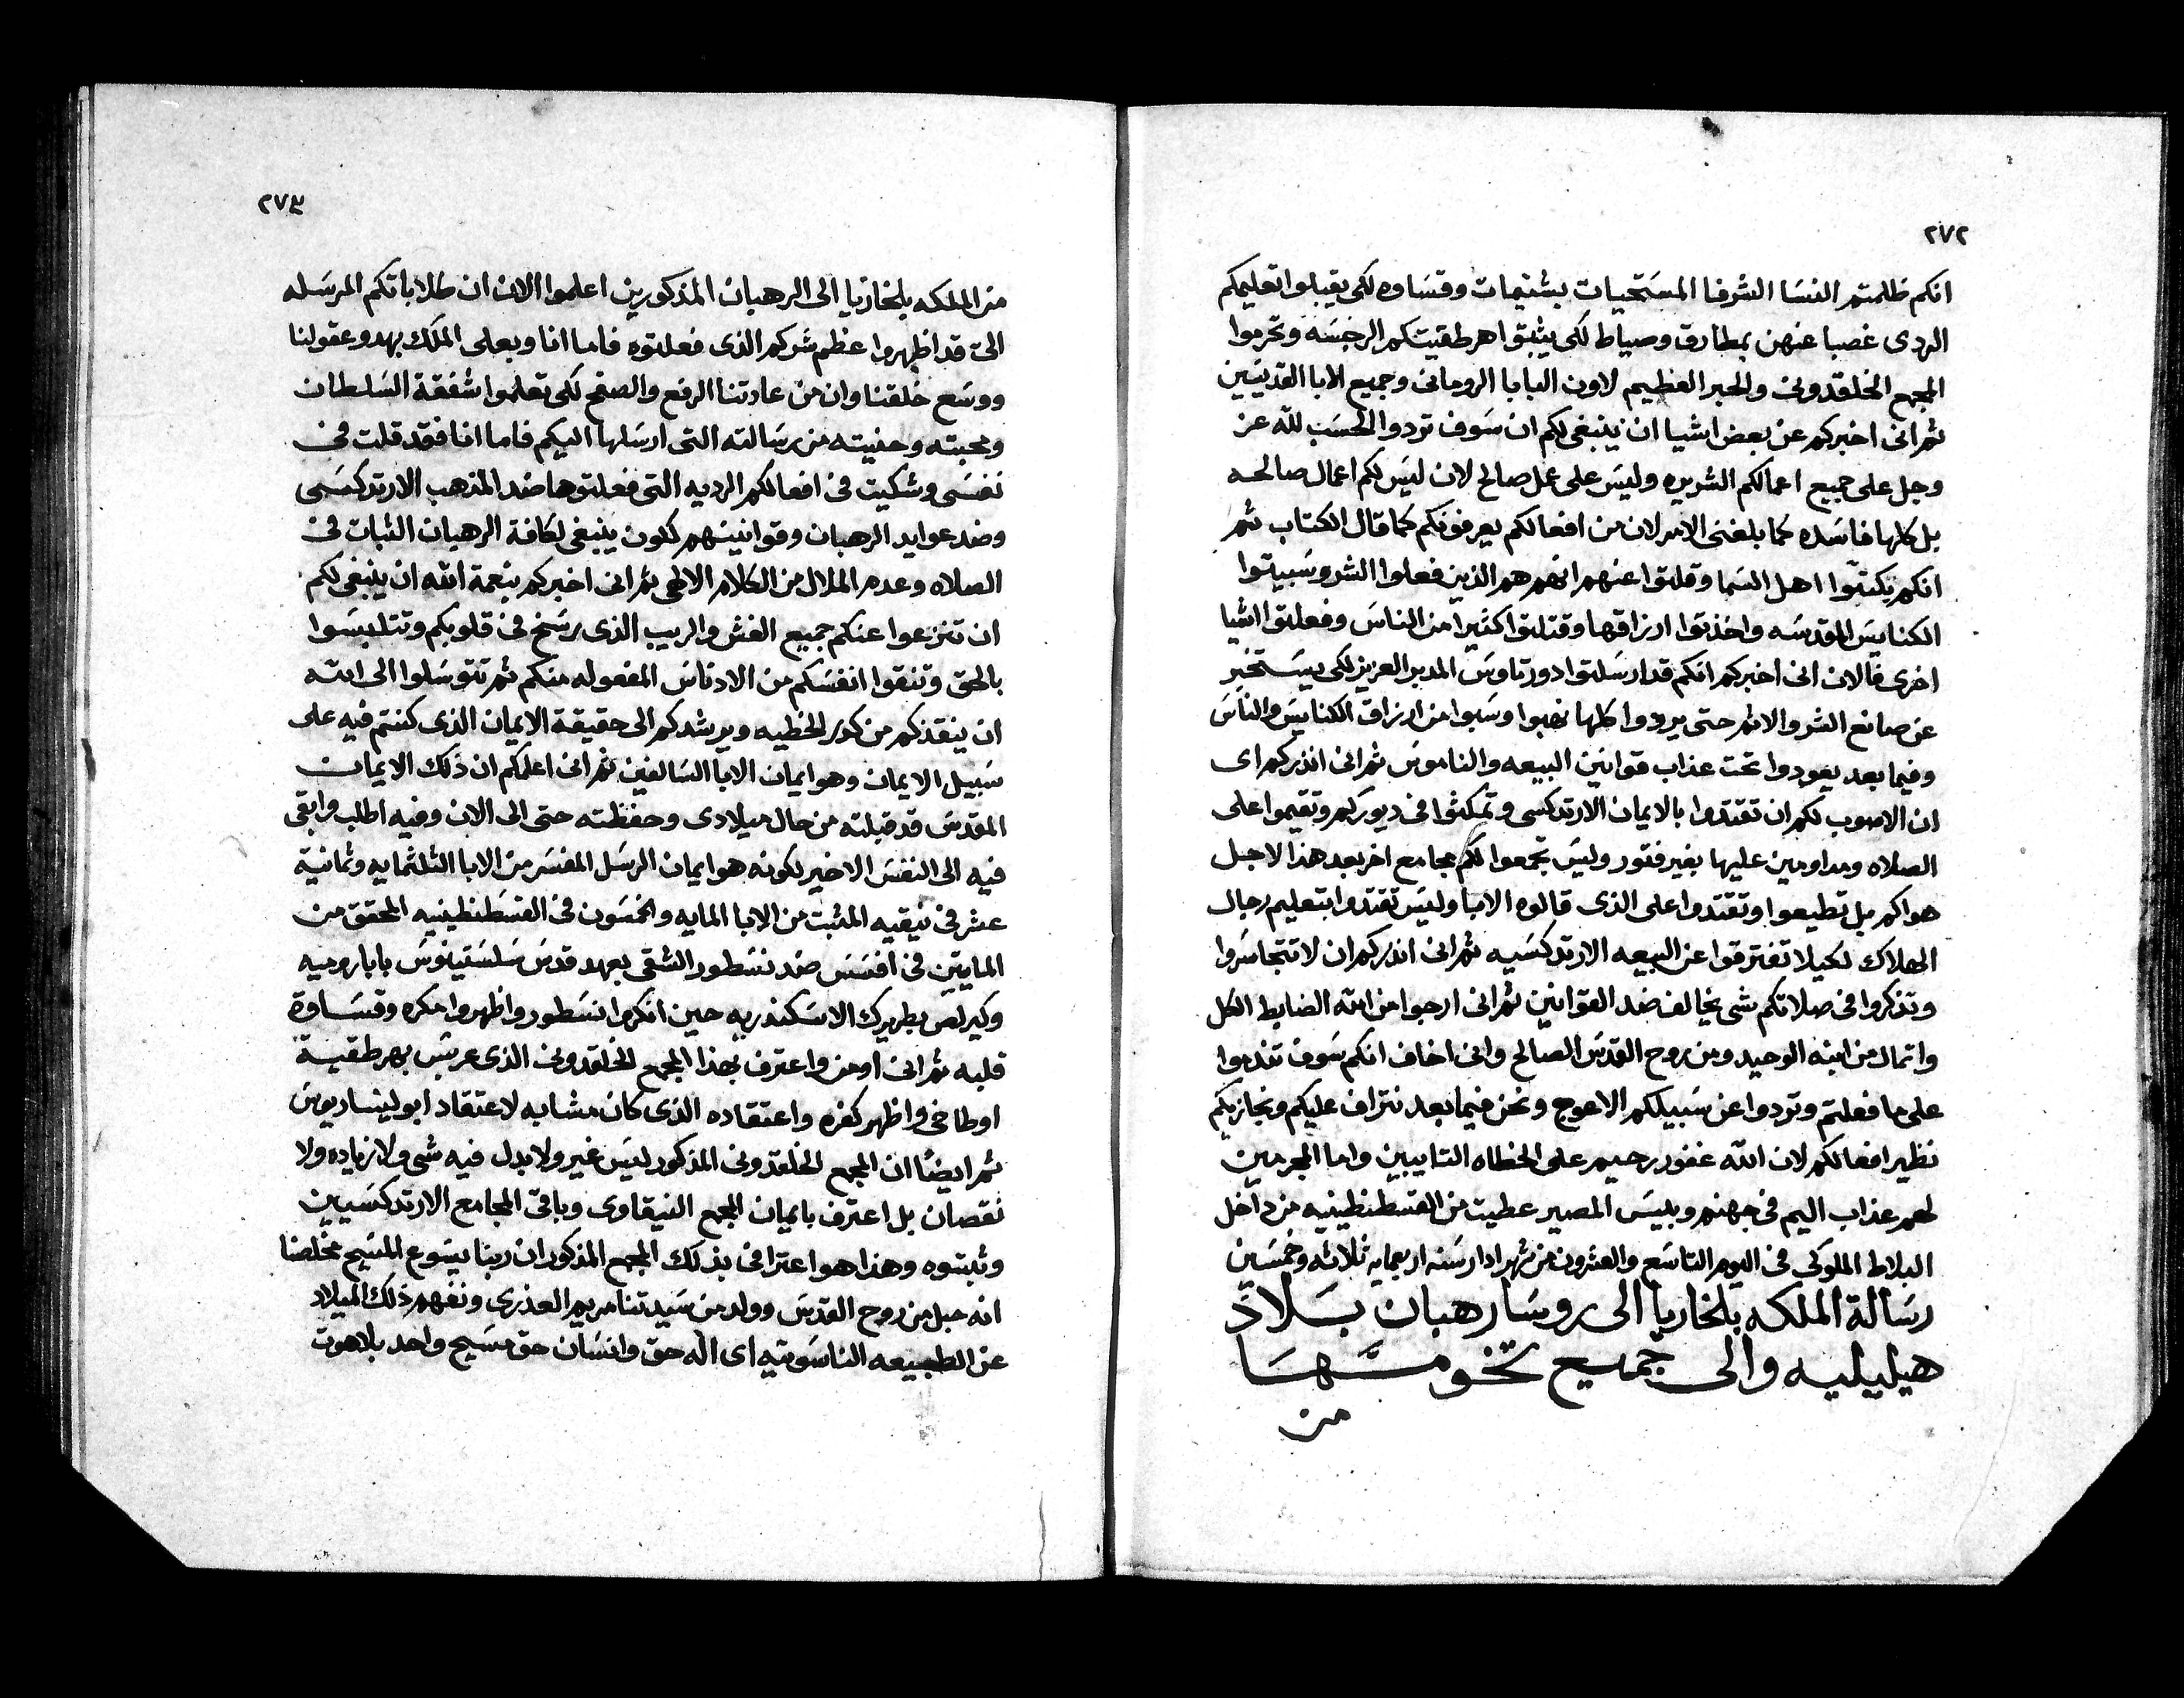 ٢٧٢
انكم ظلمتم النسا الشرفا المستحيات بشتيمات وقساوه لكى يقبلوا تعليمكم
الردى غصبا عنهن بمطارق وصياط لكى يثبتوا هرطقيتكم الرجسه وتحرموا
المجمع الخلقدونى والحبر العظيم لاون البابا الرومانى وجميع الابا القديسين
ثم انى اخبركم عن بعض اشيا ان ينبغى لكم ان سوف تردوا الحسب لله عز
وجل على جميع اعمالكم الشريره وليس على عمل صالح لان ليس لكم اعمال صالحه
بل كلها فاسده كما بلغنى الامر لان من افعالكم يعرفونكم كما قال الكتاب ثم
انكم نكبتوا اهل السما وقلتوا عنهم انهم هم الذين فعلوا الشر وسبيتوا
الكنايس المقدسه واخذتوا ارزاقها وقتلتوا كثيرا من الناس وفعلتوا اشيا
اخرى فالان انى اخبركم انكم قد ارسلتوا دورتاوس المدبر العزيز لكى يستخبر
عن صانع الشر والاثم حتى يردوا كلها نهبوا وسبوا من ارزاق الكنايس والناس
وفيما بعد يعودوا تحت عذاب قوانين البيعه والناموس ثم انى انذركم اى
ان الاصوب لكم ان تقتدوا بالايمان الارتدكسى وتمكثوا فى ديوركم وتقيموا على
الصلاه ومداومين عليها بغير فتور وليس تجمعوا لكم مجامع اخر بعد هذا لاجل
هواكم بل تطيعوا وتقتدوا على الذى قالوه الابا وليس تقتدوا بتعليم رجال
الهلاك لكيلا تفترقوا عن البيعه الارتدكسيه ثم انى انذركم ان لا تتجاسروا
وتذكروا فى صلاتكم شى يخالف ضد القوانين ثم انى ارجوا من الله الضابط الكل
واتمال من ابنه الوحيد ومن روح القدس الصالح وانى اخاف انكم سوف تندموا
على ما فعلتم وتردوا عن سبيلكم الاعوج ونحن فيما بعد نتراف عليكم ونجازيكم
نظير افعالكم لان الله غفور رحيم على الخطاه التايبين واما المجرمين
لهم عذاب اليم فى جهنم وبيس المصير عطيت من القسطنطينيه من داخل
البلاط الملوكى فى اليوم التاسع والعشرون من شهر ادار سنه اربعمايه ثلاثه وخمسين
رسالة الملكه بلخاريا الى روسا رهبان بلاد
هيليليه والى جميع تخومها
من
٢٧٣
من الملكه بلخاريا الى الرهبان المذكورين اعلموا الان ان طلاباتكم المرسله
الى قد اظهروا عظم شركم الذى فعلتوه فاما انا وبعلى الملك بهدو عقولنا
ووسع خلقنا وان من عادتنا الرفع والصفح لكى تعلموا شفقة السلطان
ومحبته وحنيته من رسالته التى ارسلها اليكم فاما انا فقد قلت فى
نفسى وشكيت فى افعالكم الرديه التى فعلتوها ضد المذهب الارتدكسى
وضد عوايد الرهبان وقوانينهم لكون ينبغى لكافة الرهبان الثبات فى
الصلاه وعدم الملال من الكلام الالهى ثم انى اخبركم بنعمة الله ان ينبغى لكم
ان تنزعوا عنكم جميع الغش والريب الذى رسخ فى قلوبكم وتتلبسوا
بالحق وتنقوا انفسكم من الادناس المفعوله منكم ثم تتوسلوا الى الله
ان ينقذكم من كدر الخطيه ويرشدكم الى حقيقة الايمان الذى كنتم فيه على
سبيل الايمان وهو ايمان الابا السالفين ثم انى اعلمكم ان ذلك الايمان
المقدس قد قبلته من حال ميلادى وحفظته حتى الى الان وفيه اطلب وابقى
فيه الى النفس الاخير لكونه هو ايمان الرسل المفسر من الابا الثلثمايه وثمانية
عشر فى نيقيه المثبت من الابا المايه والخمسون فى القسطنطينيه المحقق من
المايتين فى افسس ضد نسطور الشقى بعهد قدس سلستينوس بابا روميه
وكيرلص بطريرك الاسكندريه حين انكروا نسطور واظهروا مكره وقساوة
قلبه ثم انى اومن واعترف بهذا المجمع الخلقدونى الذى عربس بهرطقية
اوطاخى واظهر كفره واعتقاده الذى كان مشابه لاعتقاد ابوليناريوس
ثم ايضًا ان المجمع الخلقدونى المذكور ليس غير ولا بدل فيه شى ولا زياده ولا
نقصان بل اعترف بايمان المجمع النيقاوى وباقى المجامع الارتدكسيين
وثبتوه وهذا هو اعترافى بذلك المجمع المذكور ان ربنا يسوع المسيح مخلصنا
انه حبل من روح القدس وولد من سيدتنا مريم العذرى ونفهم ذلك الميلاد
عن الطبيعه الناسوتيه اى اله حق وانسان حق مسيح واحد بلاهوت